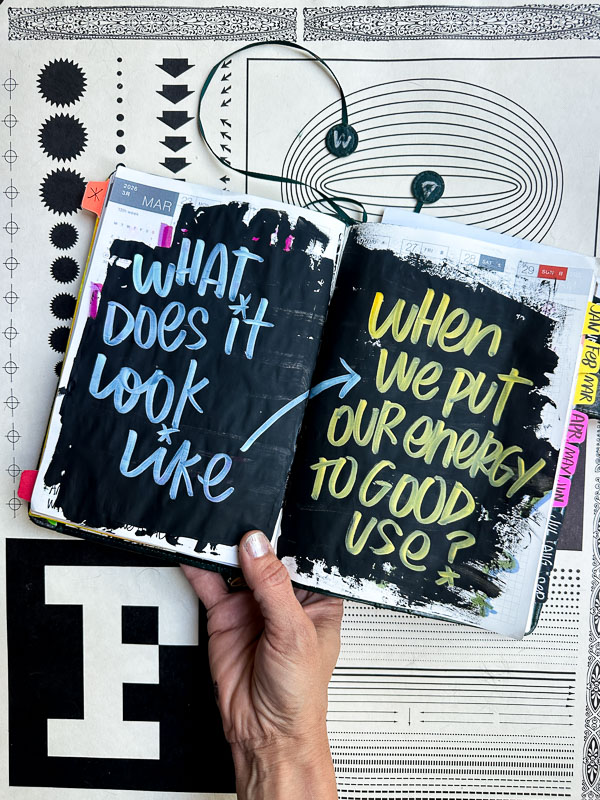 W
2026
3月
MAR
27 FRI
28 SAT
29 SUN
WHAT
DOES it
LOOK
LIKE
WHEN
WE PUT
OUR ENERGY
TO GOOD
USE?
JAN
FEB
MAR
APR
MAY
JUN
F